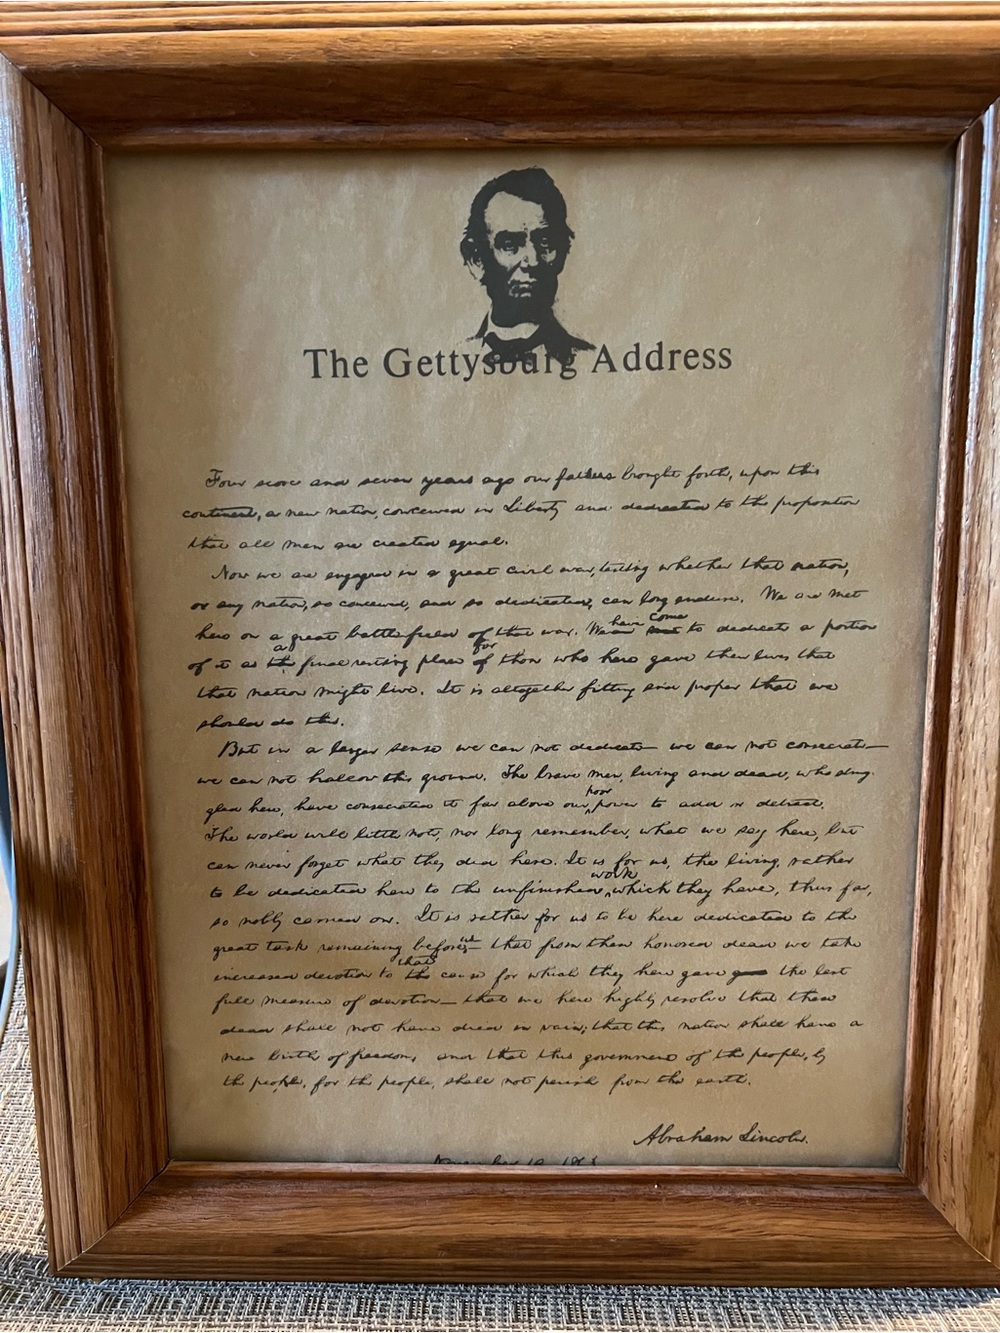 The Gettysburg Address
Four score and seven years ago our fathers brought forth, upon this
continent, a new nation, conceived in Liberty and dedicated to the proposition
that all men are created equal.
Now we are engaged in a great civil war, testing whether that nation,
or any nation, so conceived, and so dedicated, can long endure. We are met
here on a great battlefield of that war. We have come to dedicate a portion
of it as a final resting place for those who here gave their lives that
that nation might live. It is altogether fitting and proper that we
should do this.
But in a larger sense we can not dedicate — we can not consecrate —
we can not hallow this ground. The brave men, living and dead, who strug-
gled here, have consecrated it far above our poor power to add or detract.
The world will little note, nor long remember, what we say here, but
can never forget what they did here. It is for us, the living, rather
to be dedicated here to the unfinished work which they have, thus far,
so nobly carried on. It is rather for us to be here dedicated to the
great task remaining before us — that from these honored dead we take
increased devotion to that cause for which they here gave the last
full measure of devotion — that we here highly resolve that these
dead shall not have died in vain; that this nation shall have a
new birth of freedom, and that this government of the people, by
the people, for the people, shall not perish from the earth.
Abraham Lincoln.